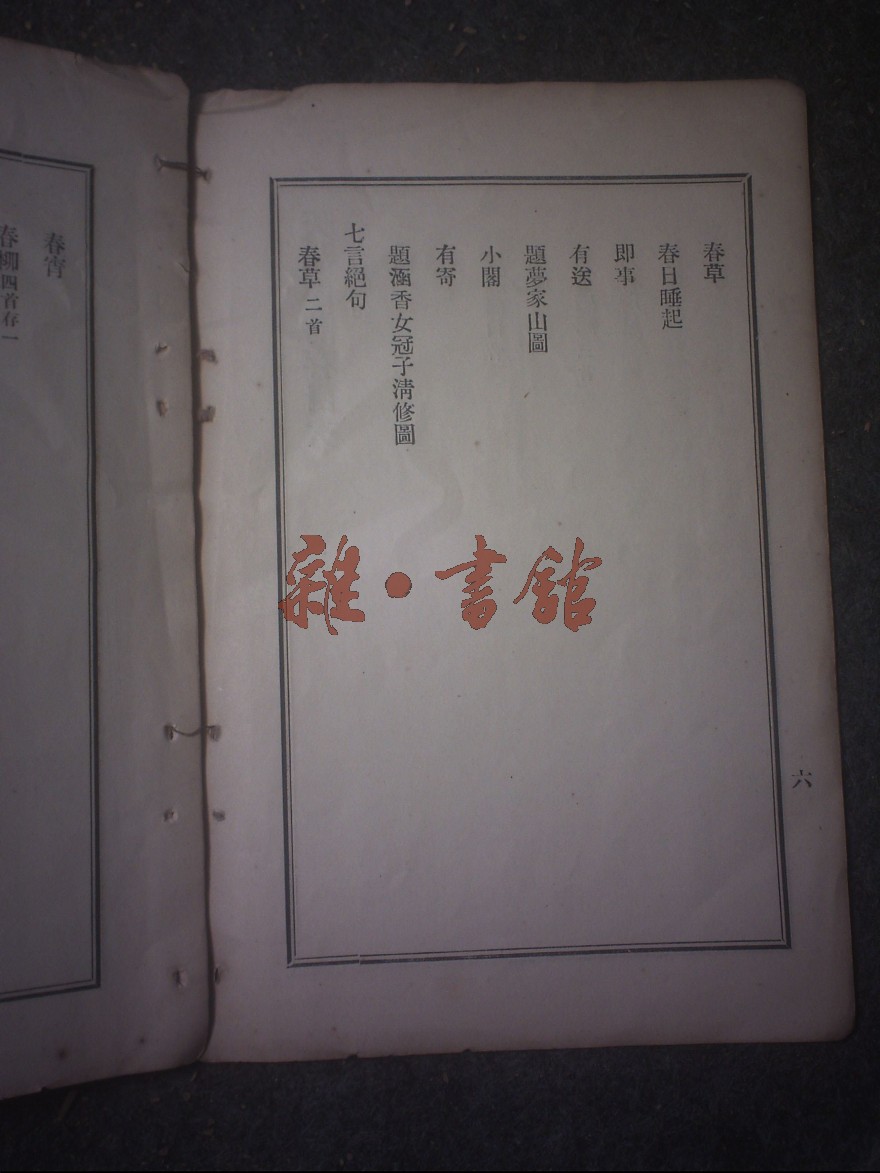 春草
春日睡起
即事
有送
題夢家山圖
小閣
有寄
題涵香女冠子清修圖
七言絕句
春草二首
六
春宵
春柳四首存一
雜•書館